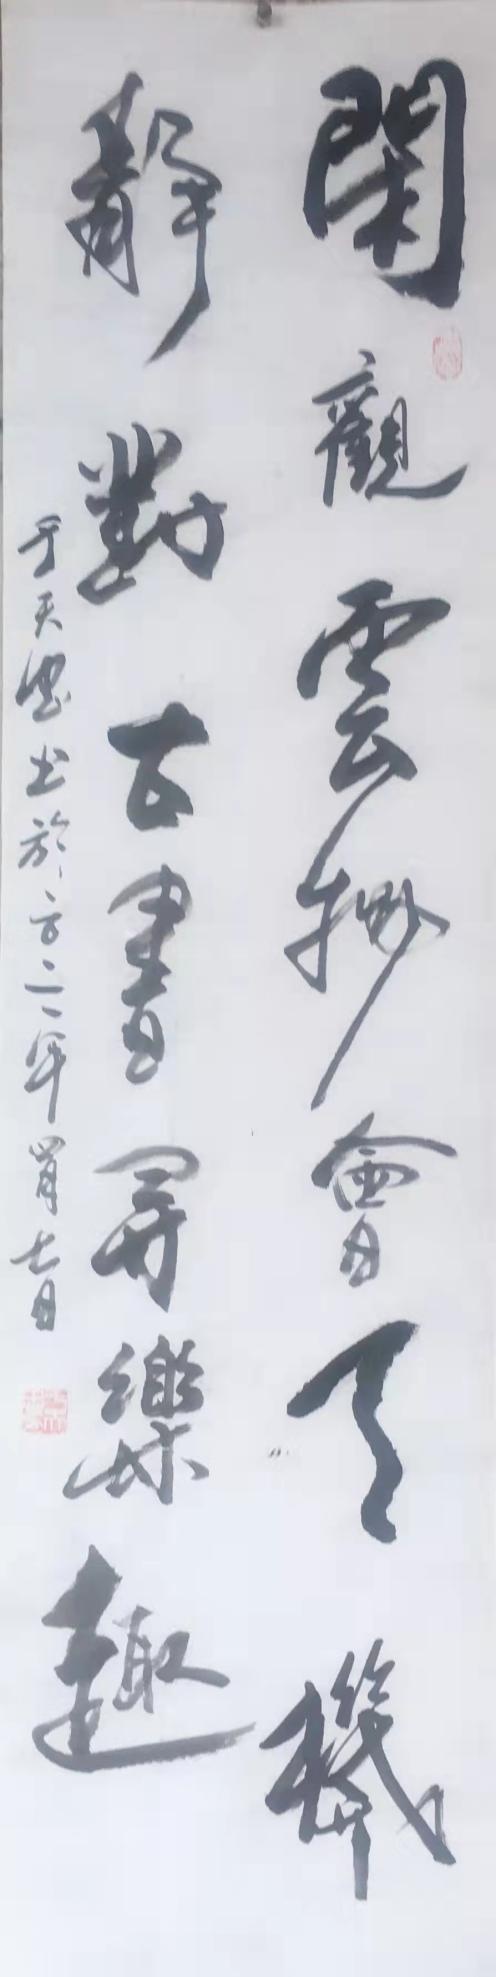 閑觀雲物會天機
靜對古書尋樂趣
于天 書於二〇二一年四月七日